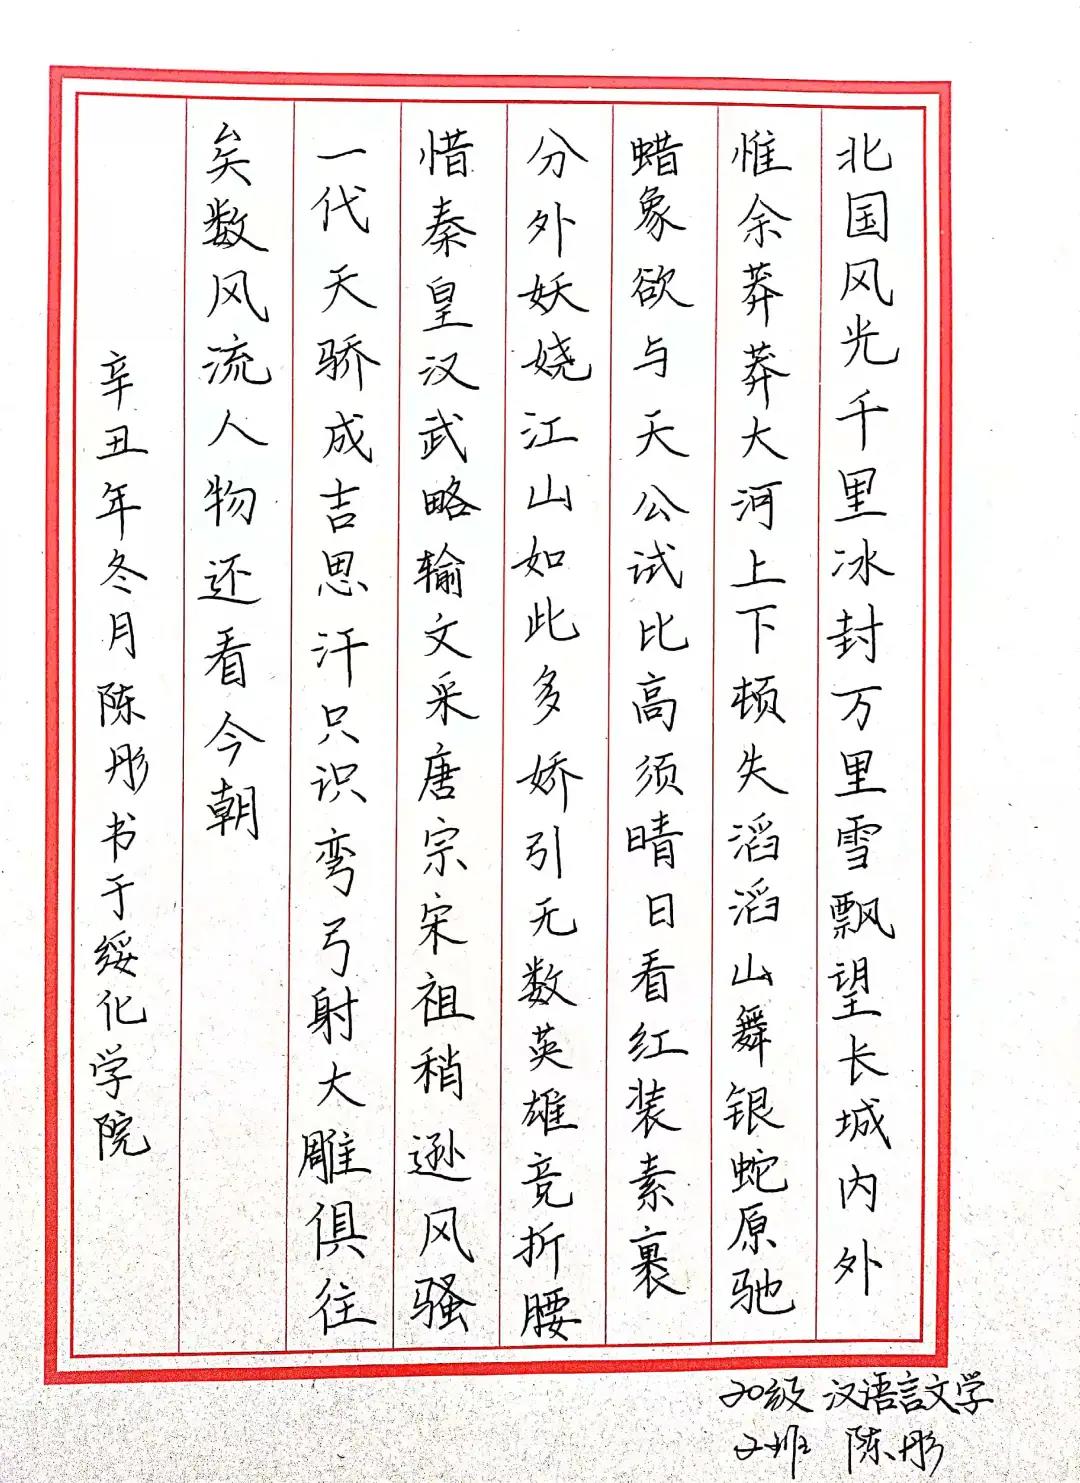 北国风光千里冰封万里雪飘望长城内外
惟余莽莽大河上下顿失滔滔山舞银蛇原驰
蜡象欲与天公试比高须晴日看红装素裹
分外妖娆江山如此多娇引无数英雄竞折腰
惜秦皇汉武略输文采唐宗宋祖稍逊风骚
一代天骄成吉思汗只识弯弓射大雕俱往
矣数风流人物还看今朝
辛丑年冬月陈彤书于绥化学院
20级汉语言文学
2班 陈彤